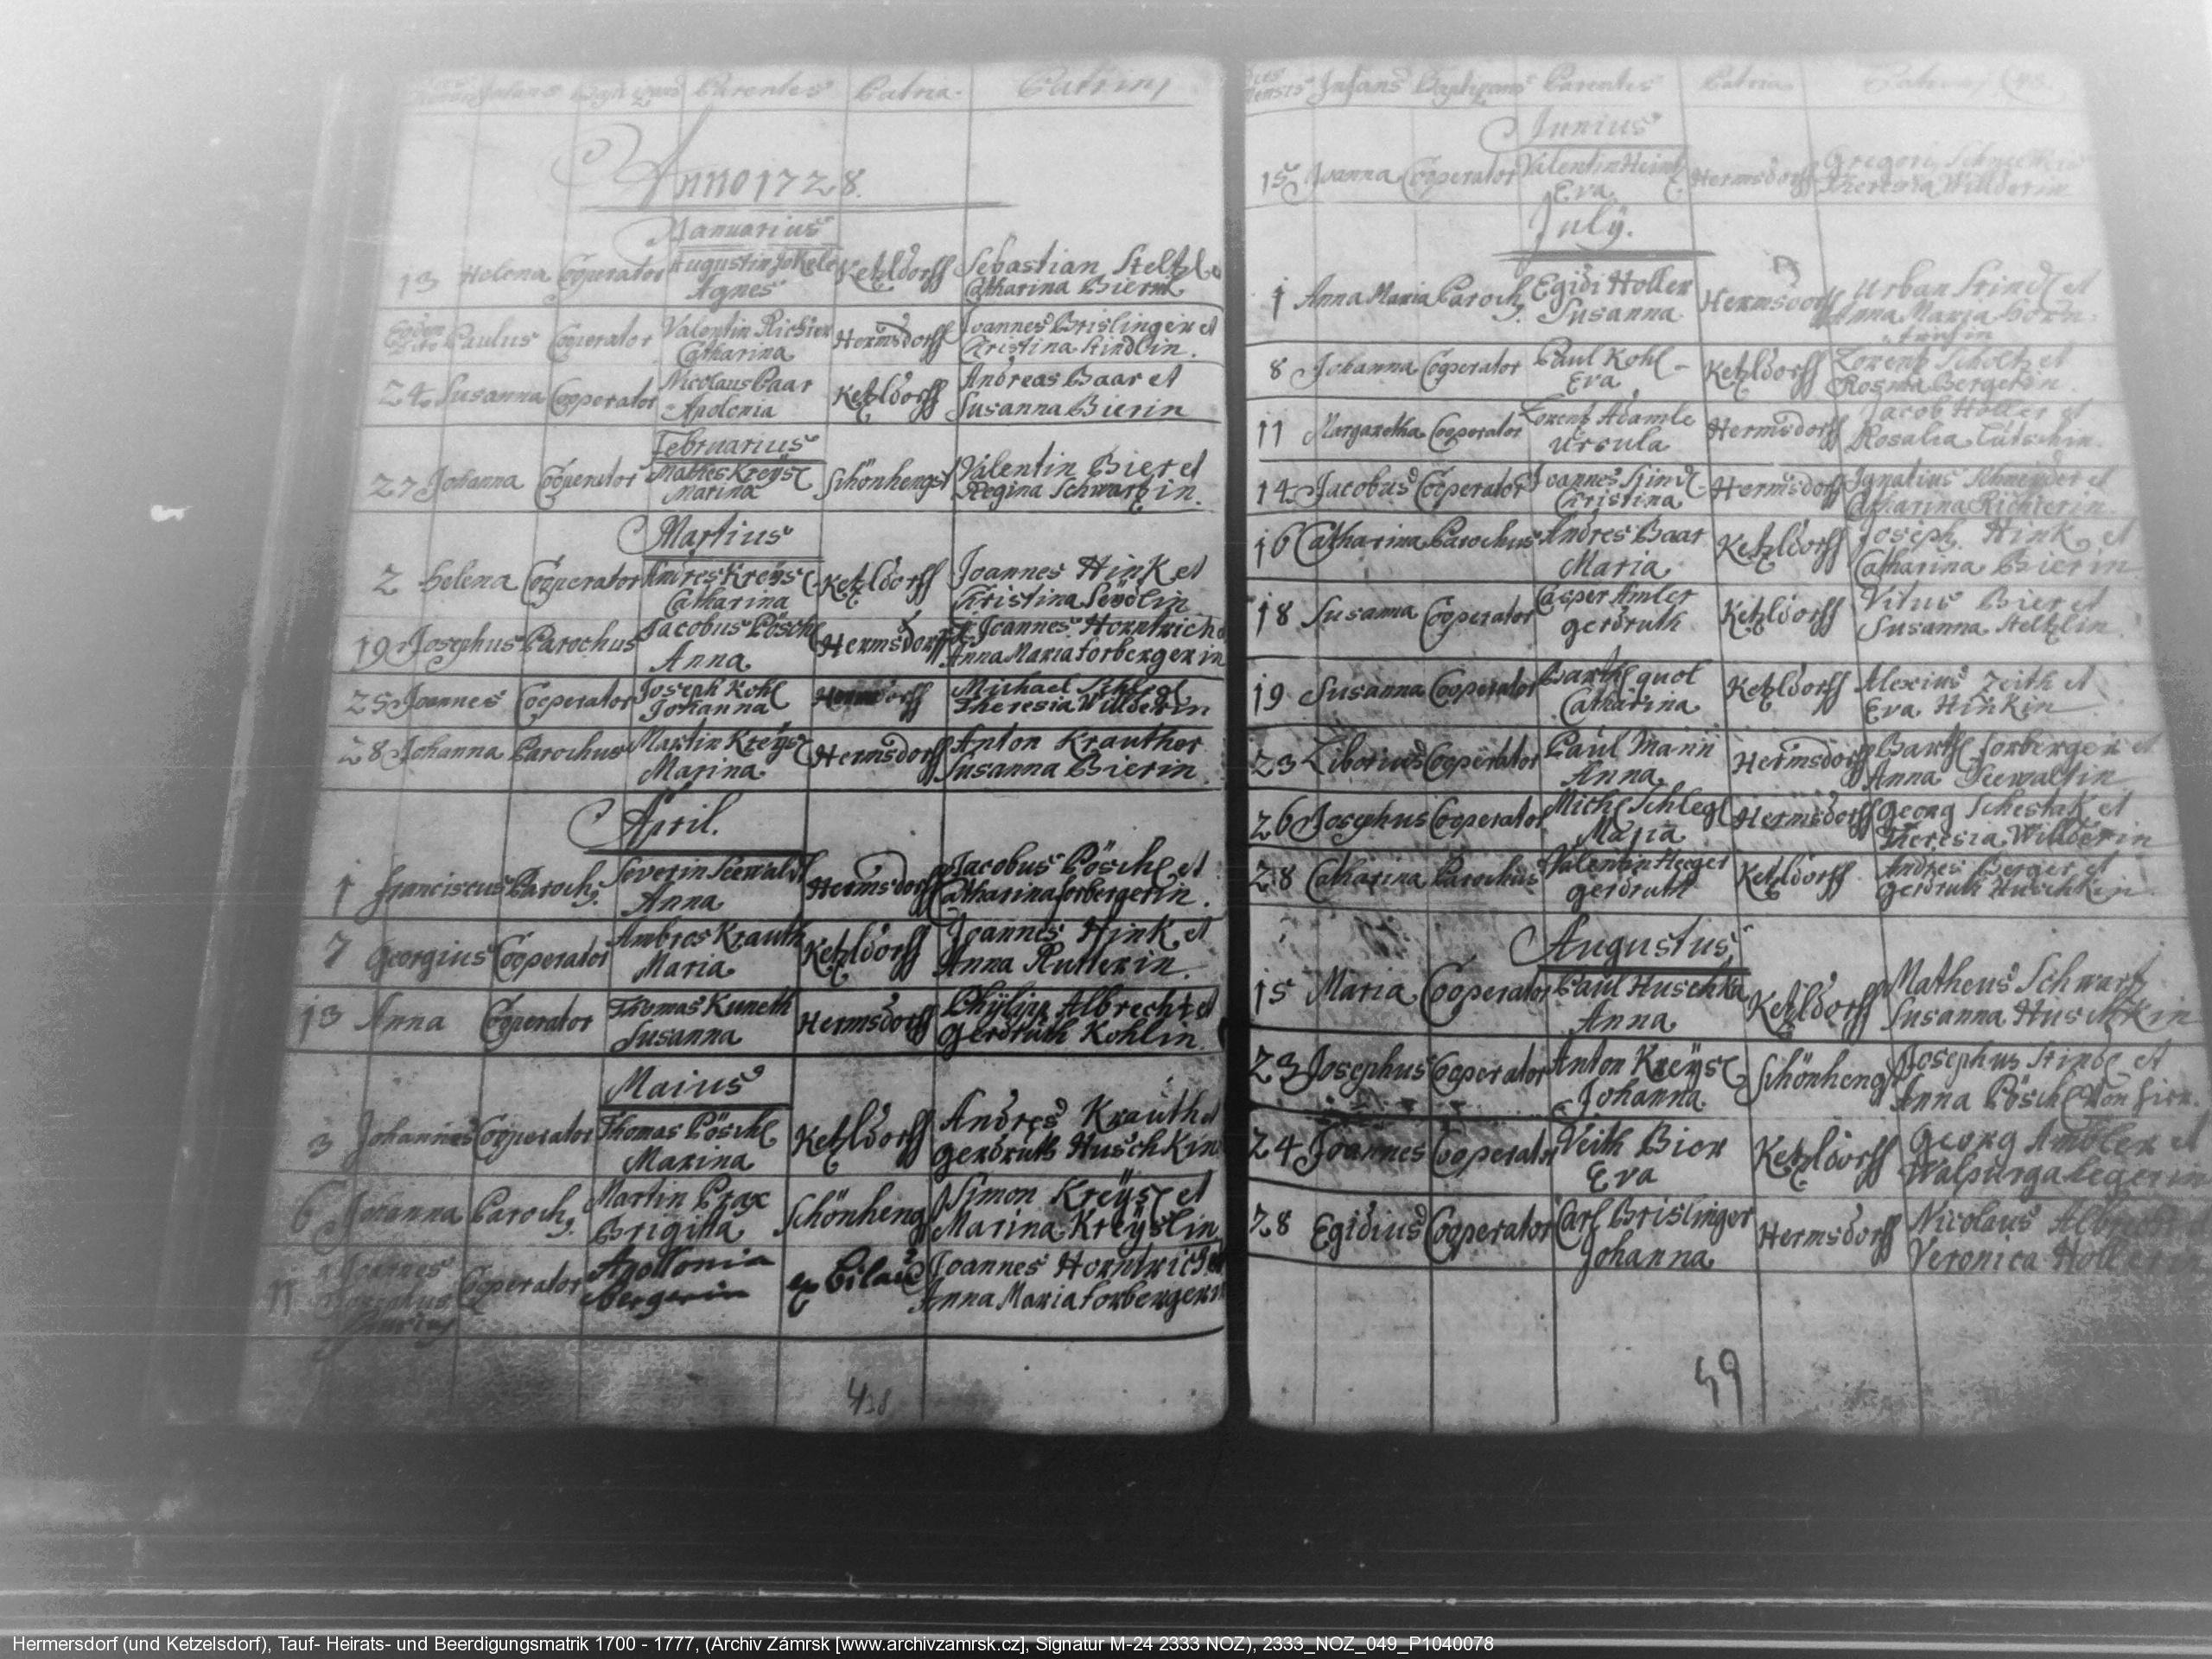 Infans Parentes Patria Patrini
Anno 1728.
Januarius
13 Helena Cooperator Augustin Jokele Ketzldorff Sebastian Steltzl
Agnes Catharina Bierin
Eodem Paulus Cooperator Valentin Richter Hermsdorff Joannes Brislinger et
Catharina Kristina Kindlin.
24 Susanna Cooperator Nicolaus Baar Ketzldorff Andreas Baar et
Apolonia Susanna Bierin
Februarius
27 Johanna Cooperator Mathes Kreysl Schönhengst Valentin Bier et
Marina Regina Schwartzin.
Martius
2 Helena Cooperator Andres Kreysl Ketzldorff Joannes Hink et
Catharina Kristina
19 Josephus Parochus Jacobus Pöschl Hermsdorff Joannes Horntrich
Anna Anna Maria Forbergerin
25 Joannes Cooperator Joseph Kohl Michael Schlegl
Johanna Theresia Willderin
28 Johanna Parochus Martin Kreysl Hermsdorff Anton Krauther
Marina Susanna Bierin
April.
1 Franciscus Paroch9 Severin Seewaldt Hermsdorff Jacobus Pöschl et
Anna Catharina Forbergerin.
7 Georgius Cooperator Ambros Krauth Ketzldorff Joannes Hink et
Maria Anna Rutterin.
13 Anna Cooperator Thomas Kuneth Hermsdorff Phÿlipp Albrecht et
Susanna Gerdruth Kohlin.
Maius
3 Johannes Cooperator Thomas Pöschl Ketzldorff Andres Krauth et
Marina Gerdruth Huschkin
6 Johanna Paroch9 Martin Prax Schönheng Simon Kreÿsl et
Brigitta Marina Kreÿslin
11 Joannes Cooperator Apollonia ex Bilau Joannes Horntrich et
Bergerin Anna Maria Forbergerin
Infans Baptizans Parentes Patria
Junius
15 Joanna Cooperator Valentin Heintz Hermsdorff
Eva Theresia Willderin
Julÿ.
1 Anna Maria Paroch9 Egidi Holler Hermsdorff Urban Kindl et
Susanna Anna Maria Horn-
trichin
8 Johanna Cooperator Paul Kohl Ketzldorff Lorentz Scholtz et
Eva Rosina Bergerin.
11 Margaretha Cooperator Lorentz Adamle Hermsdorff Jacob Holler et
Ursula Rosalia
14 Jacobus Cooperator Joannes Kindl Hermsdorff Ignatius Schneyder et
Christina Catharina Richterin.
16 Catharina Parochus Andres Baar Ketzldorff Joseph Hink et
Maria Catharina Bierin
18 Susanna Cooperator Casper Amler Ketzldorff Vitus Bier et
Gerdruth Susanna Steltzlin.
19 Susanna Cooperator Barthl Ketzldorff Alexius Zeith et
Catharina Eva Hinkin
23 Liborius Cooperator Paul Mann Hermsdorff Barthl Forberger et
Anna Anna Seewaltin
26 Josephus Cooperator Michl Schlegl Hermsdorff Georg Schestak et
Maria Theresia Willderin
28 Catharina Parochus Valentin Heeger Ketzldorff Andres Berger et
Gerdruth Gerdruth Huschkin
Augustus
15 Maria Cooperator Paul Huschka Ketzldorff Matheus Schwartz
Anna Susanna Huschkin
23 Josephus Cooperator Anton Kreÿsl Schönheng Josephus Kindl et
Johanna Anna Pöschl
24 Joannes Cooperator Veith Bier Ketzldorff Georg Ambler et
Eva Walpurga Hegerin
28 Egidius Cooperator Carl Brislinger Hermsdorff Nicolaus Albrecht
Johanna Veronica Hollerin
Hermersdorf (und Ketzelsdorf), Tauf- Heirats- und Beerdigungsmatrik 1700 - 1777, (Archiv Zámrsk [www.archivzamrsk.cz], Signatur M-24 2333 NOZ), 2333_NOZ_049_P1040078